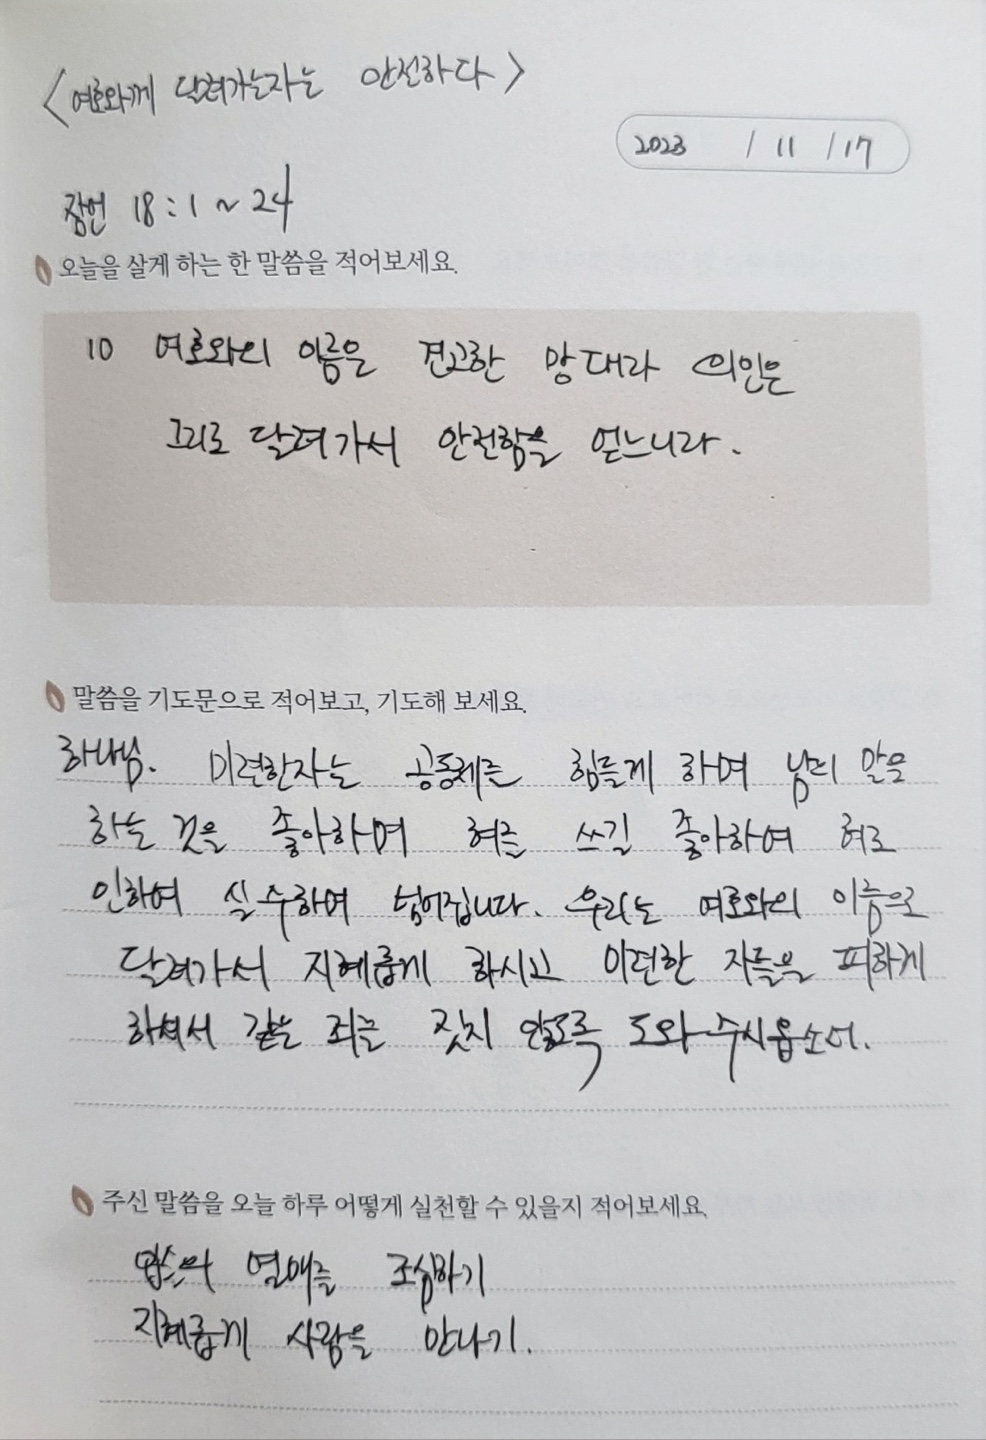 <여호와께 달려가는자는 안전하다>
2023 / 11 / 17
잠언 18:1~24
오늘을 살게 하는 한 말씀을 적어보세요.
10 여호와의 이름은 견고한 망대라 의인은
그리로 달려가서 안전함을 얻느니라.
말씀을 기도문으로 적어보고, 기도해 보세요.
하나님. 미련한자는 공동체를 힘들게 하며 남의 말을
하는 것을 좋아하며 혀를 쓰길 좋아하여 혀로
인하여 실수하여 넘어집니다. 우리는 여호와의 이름으로
달려가서 지혜롭게 하시고 미련한 자들을 피하게
하셔서 같은 죄를 짓지 않도록 도와주시옵소서.
주신 말씀을 오늘 하루 어떻게 실천할 수 있을지 적어보세요.
입술의 열매를 조심하기
지혜롭게 사람을 만나기.